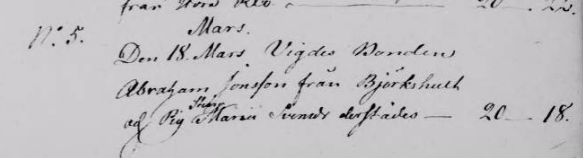 från Stora Red — 20 — 22.
Mars.
N:o 5.
Den 18. Mars. Vigdes Bonden
Abraham Jonsson från Björkshult
och Pig. Maria Svensdr derstädes — 20 — 18.